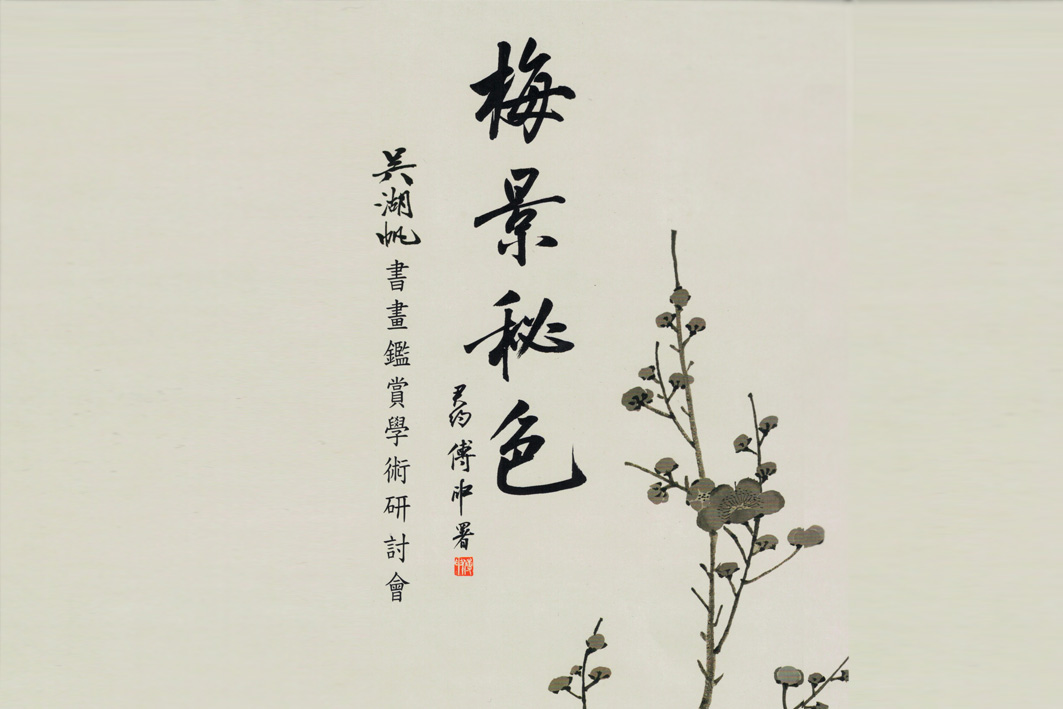 梅景秘色
君約傅申署
吳湖帆書畫鑑賞學術研討會